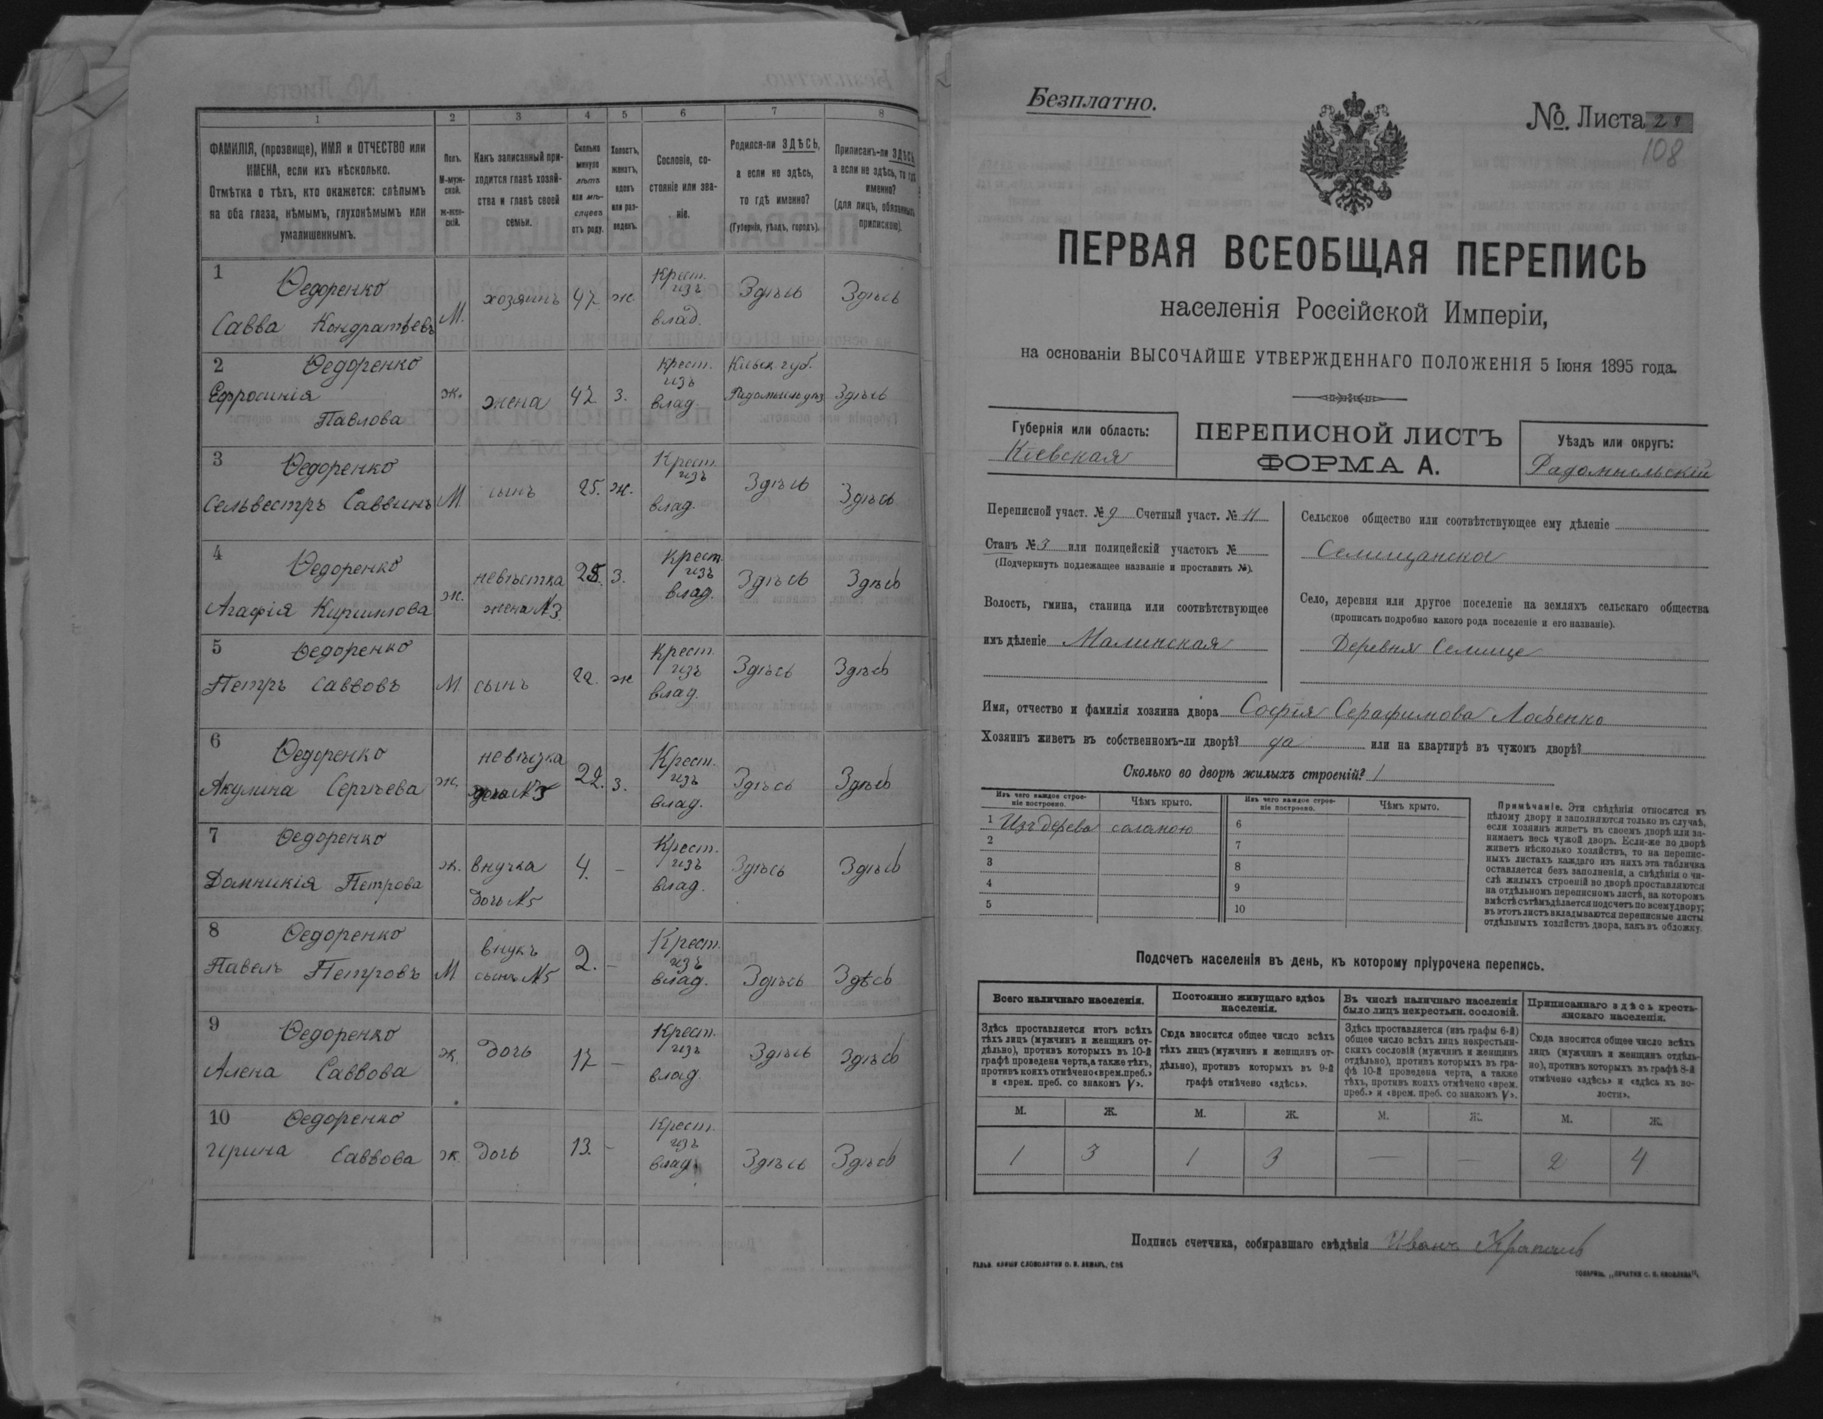 1 2 3 4 5 6 7 8
ФАМИЛІЯ, (прозвище), ИМЯ и ОТЧЕСТВО или
ИМЕНА, если ихъ нѣсколько.
Отмѣтка о тѣхъ, кто окажется: слѣпымъ
на оба глаза, нѣмымъ, глухонѣмымъ или
умалишеннымъ.
Полъ.
М-муж-
ской.
Ж-жен-
скій.
Какъ записанный при-
ходится главѣ хозяй-
ства и главѣ своей
семьи.
Сколько
минуло
лѣтъ
или мѣ-
сяцевъ
отъ роду.
Холостъ,
женатъ,
вдовъ
или раз-
веденъ.
Сословіе, со-
стояніе или зва-
ніе.
Родился-ли ЗДѢСЬ,
а если не здѣсь,
то гдѣ именно?
(Губернія, уѣздъ, городъ).
Приписанъ-ли ЗДѢСЬ,
а если не здѣсь, то гдѣ
именно?
(для лицъ, обязанныхъ
припискою).
1 Ѳедоренко
Савва Кондратьевъ М. хозяинъ 47 ж Крест. изъ влад. Здѣсь Здѣсь
2 Ѳедоренко
Ефросинія
Павлова ж. жена 47 з. Крест. изъ влад. Кіевск. губ. Здѣсь
3 Ѳедоренко
Сельвестръ Саввинъ М сынъ 25. ж. Крест. изъ влад. Здѣсь Здѣсь
4 Ѳедоренко
Агафія Кириллова ж. невѣстка жена №3 25. з. Крест. изъ влад. Здѣсь Здѣсь
5 Ѳедоренко
Петръ Саввовъ М сынъ 22. ж Крест. изъ влад. Здѣсь Здѣсь
6 Ѳедоренко
Акулина Сергѣева ж. невѣзка №5 22. з. Крест. изъ влад. Здѣсь Здѣсь
7 Ѳедоренко
Домникія Петрова ж. внучка дочь №5 4. – Крест. изъ влад. Здѣсь Здѣсь
8 Ѳедоренко
Павелъ Петровъ М внукъ сынъ №5 2. – Крест. изъ влад. Здѣсь Здѣсь
9 Ѳедоренко
Алена Саввова ж. дочь 17 – Крест. изъ влад Здѣсь Здѣсь
10 Ѳедоренко
Ирина Саввова ж. дочь 13. – Крест. изъ влад. Здѣсь Здѣсь
Безплатно.
№ Листа 28
108
ПЕРВАЯ ВСЕОБЩАЯ ПЕРЕПИСЬ
населенія Россійской Имперіи,
на основаніи ВЫСОЧАЙШЕ УТВЕРЖДЕННАГО ПОЛОЖЕНІЯ 5 Іюня 1895 года.
Губернія или область:
Кіевская
ПЕРЕПИСНОЙ ЛИСТЪ
ФОРМА А.
Уѣздъ или округъ:
Радомысльскій
Переписной участ. № 9 Счетный участ. № 11
Станъ № 3 или полицейскій участокъ №
(Подчеркнуть подлежащее названіе и проставить №).
Волость, гмина, станица или соотвѣтствующее
имъ дѣленіе Малинская
Сельское общество или соотвѣтствующее ему дѣленіе
Село, деревня или другое поселеніе на земляхъ сельскаго общества
(прописать подробно какого рода поселеніе и его названіе).
Деревня Селище
Имя, отчество и фамилія хозяина двора Софія Серафимова Лосѣенко
Хозяинъ живетъ въ собственномъ-ли дворѣ? да или на квартирѣ въ чужомъ дворѣ?
Сколько во дворѣ жилыхъ строеній? 1
Изъ чего каждое строе-
ніе построено.
Чѣмъ крыто.
Изъ чего каждое строе-
ніе построено.
Чѣмъ крыто.
1 Изъ дерева соломою 6
2 7
3 8
4 9
5 10
Примѣчаніе. Эти свѣдѣнія относятся къ
цѣлому двору и заполняются только въ случаѣ,
если хозяинъ живетъ въ своемъ дворѣ или за-
нимаетъ весь чужой дворъ. Если-же во дворѣ
живетъ нѣсколько хозяйствъ, то на перепис-
ныхъ листахъ каждаго изъ нихъ эта табличка
оставляется безъ заполненія, а свѣдѣнія о чи-
слѣ жилыхъ строеній во дворѣ проставляются
на отдѣльномъ переписномъ листѣ, на которомъ
вмѣстѣ съ тѣмъ дѣлается подсчетъ по всему двору;
въ этотъ листъ вкладываются переписные листы
отдѣльныхъ хозяйствъ двора, какъ въ обложку.
Подсчетъ населенія въ день, къ которому пріурочена перепись.
Всего наличнаго населенія.
Здѣсь проставляется итогъ всѣхъ
тѣхъ лицъ (мужчинъ и женщинъ от-
дѣльно), противъ которыхъ въ 10-й
графѣ проведена черта, а также тѣхъ,
противъ коихъ отмѣчено «врем. преб.»
и «врем. преб. со знакомъ V».
Постоянно живущаго здѣсь
населенія.
Сюда вносится общее число всѣхъ
тѣхъ лицъ (мужчинъ и женщинъ от-
дѣльно), противъ которыхъ въ 9-й
графѣ отмѣчено «здѣсь».
Въ числѣ наличнаго населенія
было лицъ некрестьян. сословій.
Здѣсь проставляется (изъ графы 6-й)
общее число всѣхъ лицъ некрестьян-
скихъ сословій (мужчинъ и женщинъ
отдѣльно), противъ которыхъ въ гра-
фѣ 10-й проведена черта, а также
тѣхъ, противъ коихъ отмѣчено «врем.
преб.» и «врем. преб. со знакомъ V».
Приписаннаго здѣсь кресть-
янскаго населенія.
Сюда вносится общее число всѣхъ
лицъ (мужчинъ и женщинъ отдѣль-
но), противъ которыхъ въ графѣ 8-й
отмѣчено «здѣсь» и «здѣсь въ во-
лости».
М. Ж. М. Ж. М. Ж. М. Ж.
1 3 1 3 — — 2 4
Подпись счетчика, собиравшаго свѣдѣнія Иванъ